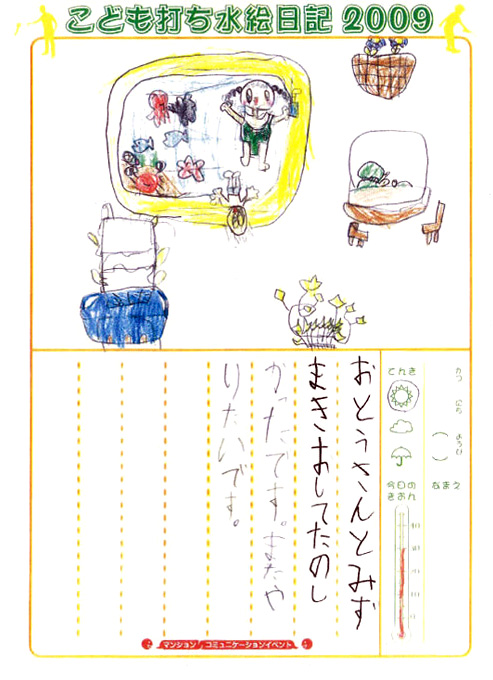 こども打ち水絵日記 2009
がつ にち ようび
( )
なまえ
てんき
今日の
きおん
おとうさんとみず
まきおしてたのし
かったです。またや
りたいです。
マンション コミュニケーションイベント